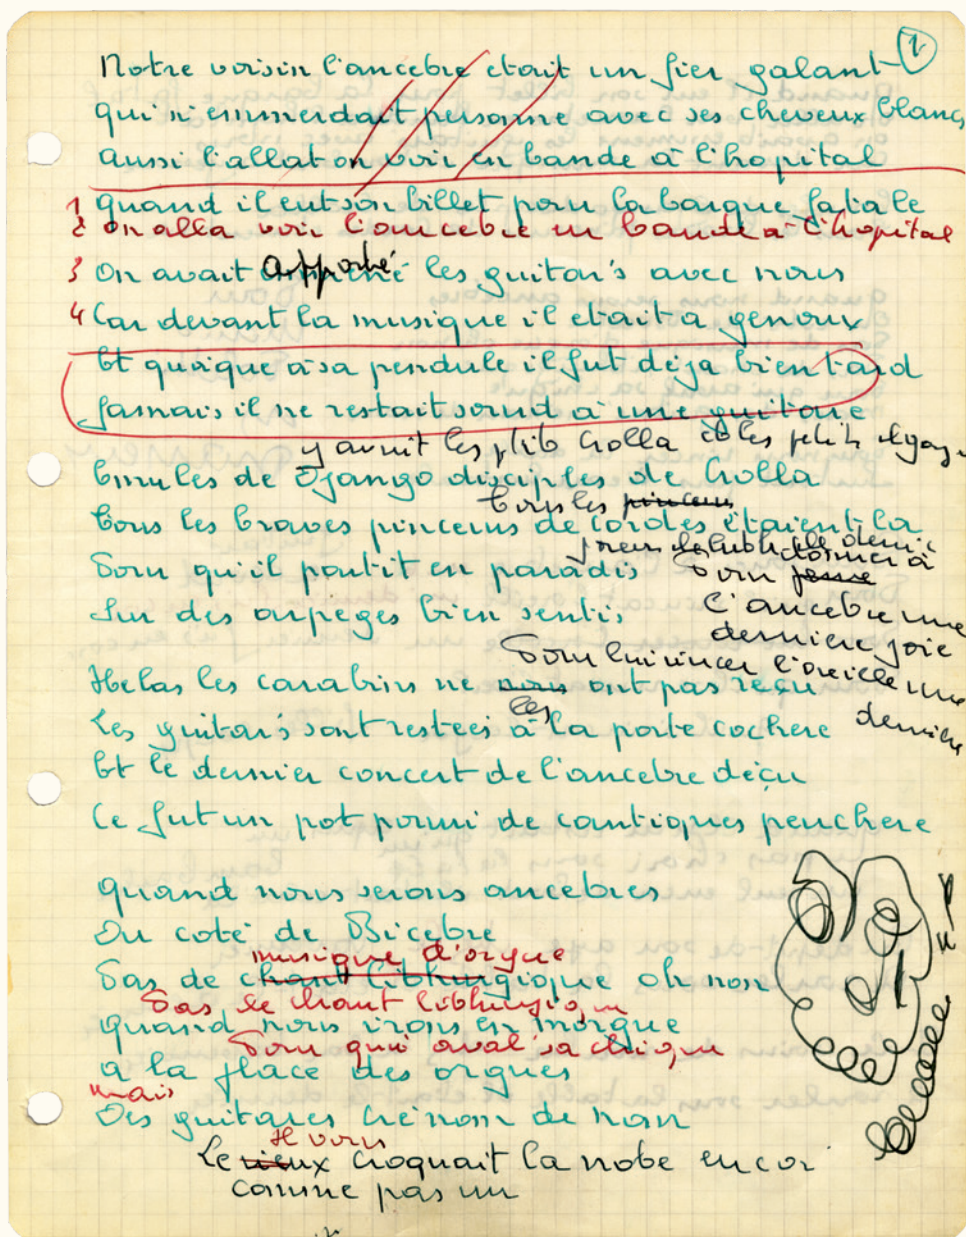 1
Notre voisin l'ancebre etait un fier galant
qui n'emmerdait personne avec ses cheveux blancs
Aussi l'allat on voir en bande à l'hopital
1 quand il eut son billet pour la barque fatale
2 on alla voir l'ancebre en bande à l'hopital
3 On avait apporté les guitar's avec nous
4 Car devant la musique il etait a genoux
Et quoique à sa pendule il fut deja bien tard
Jamais il ne restait sourd à une guitare
y avait les p'tits Crolla et les petits
Emules de Django disciples de Crolla
tous les pinceurs
tous les braves pinceurs de cordes étaient la
Pour qu'il partit en paradis
Pour donner à
Sur des arpèges bien sentis
l'ancebre une
dernière joie
Pour lui rincer l'oreille une
dernière
Helas les carabins ne les ont pas reçu
Les guitar's sont restées à la porte cochere
Et le dernier concert de l'ancebre déçu
Ce fut un pot pourri de cantiques peuchere
quand nous serons ancebres
Du coté de Bicebre
musique d'orgue
Pas de chant liturgique oh non
Pas de chant liturgique
quand nous irons en morgue
Pour qui aval' sa chique
a la place des orgues
mais
Des guitares cré nom de nom
Le vieux croquait la nobe encor
comme pas un